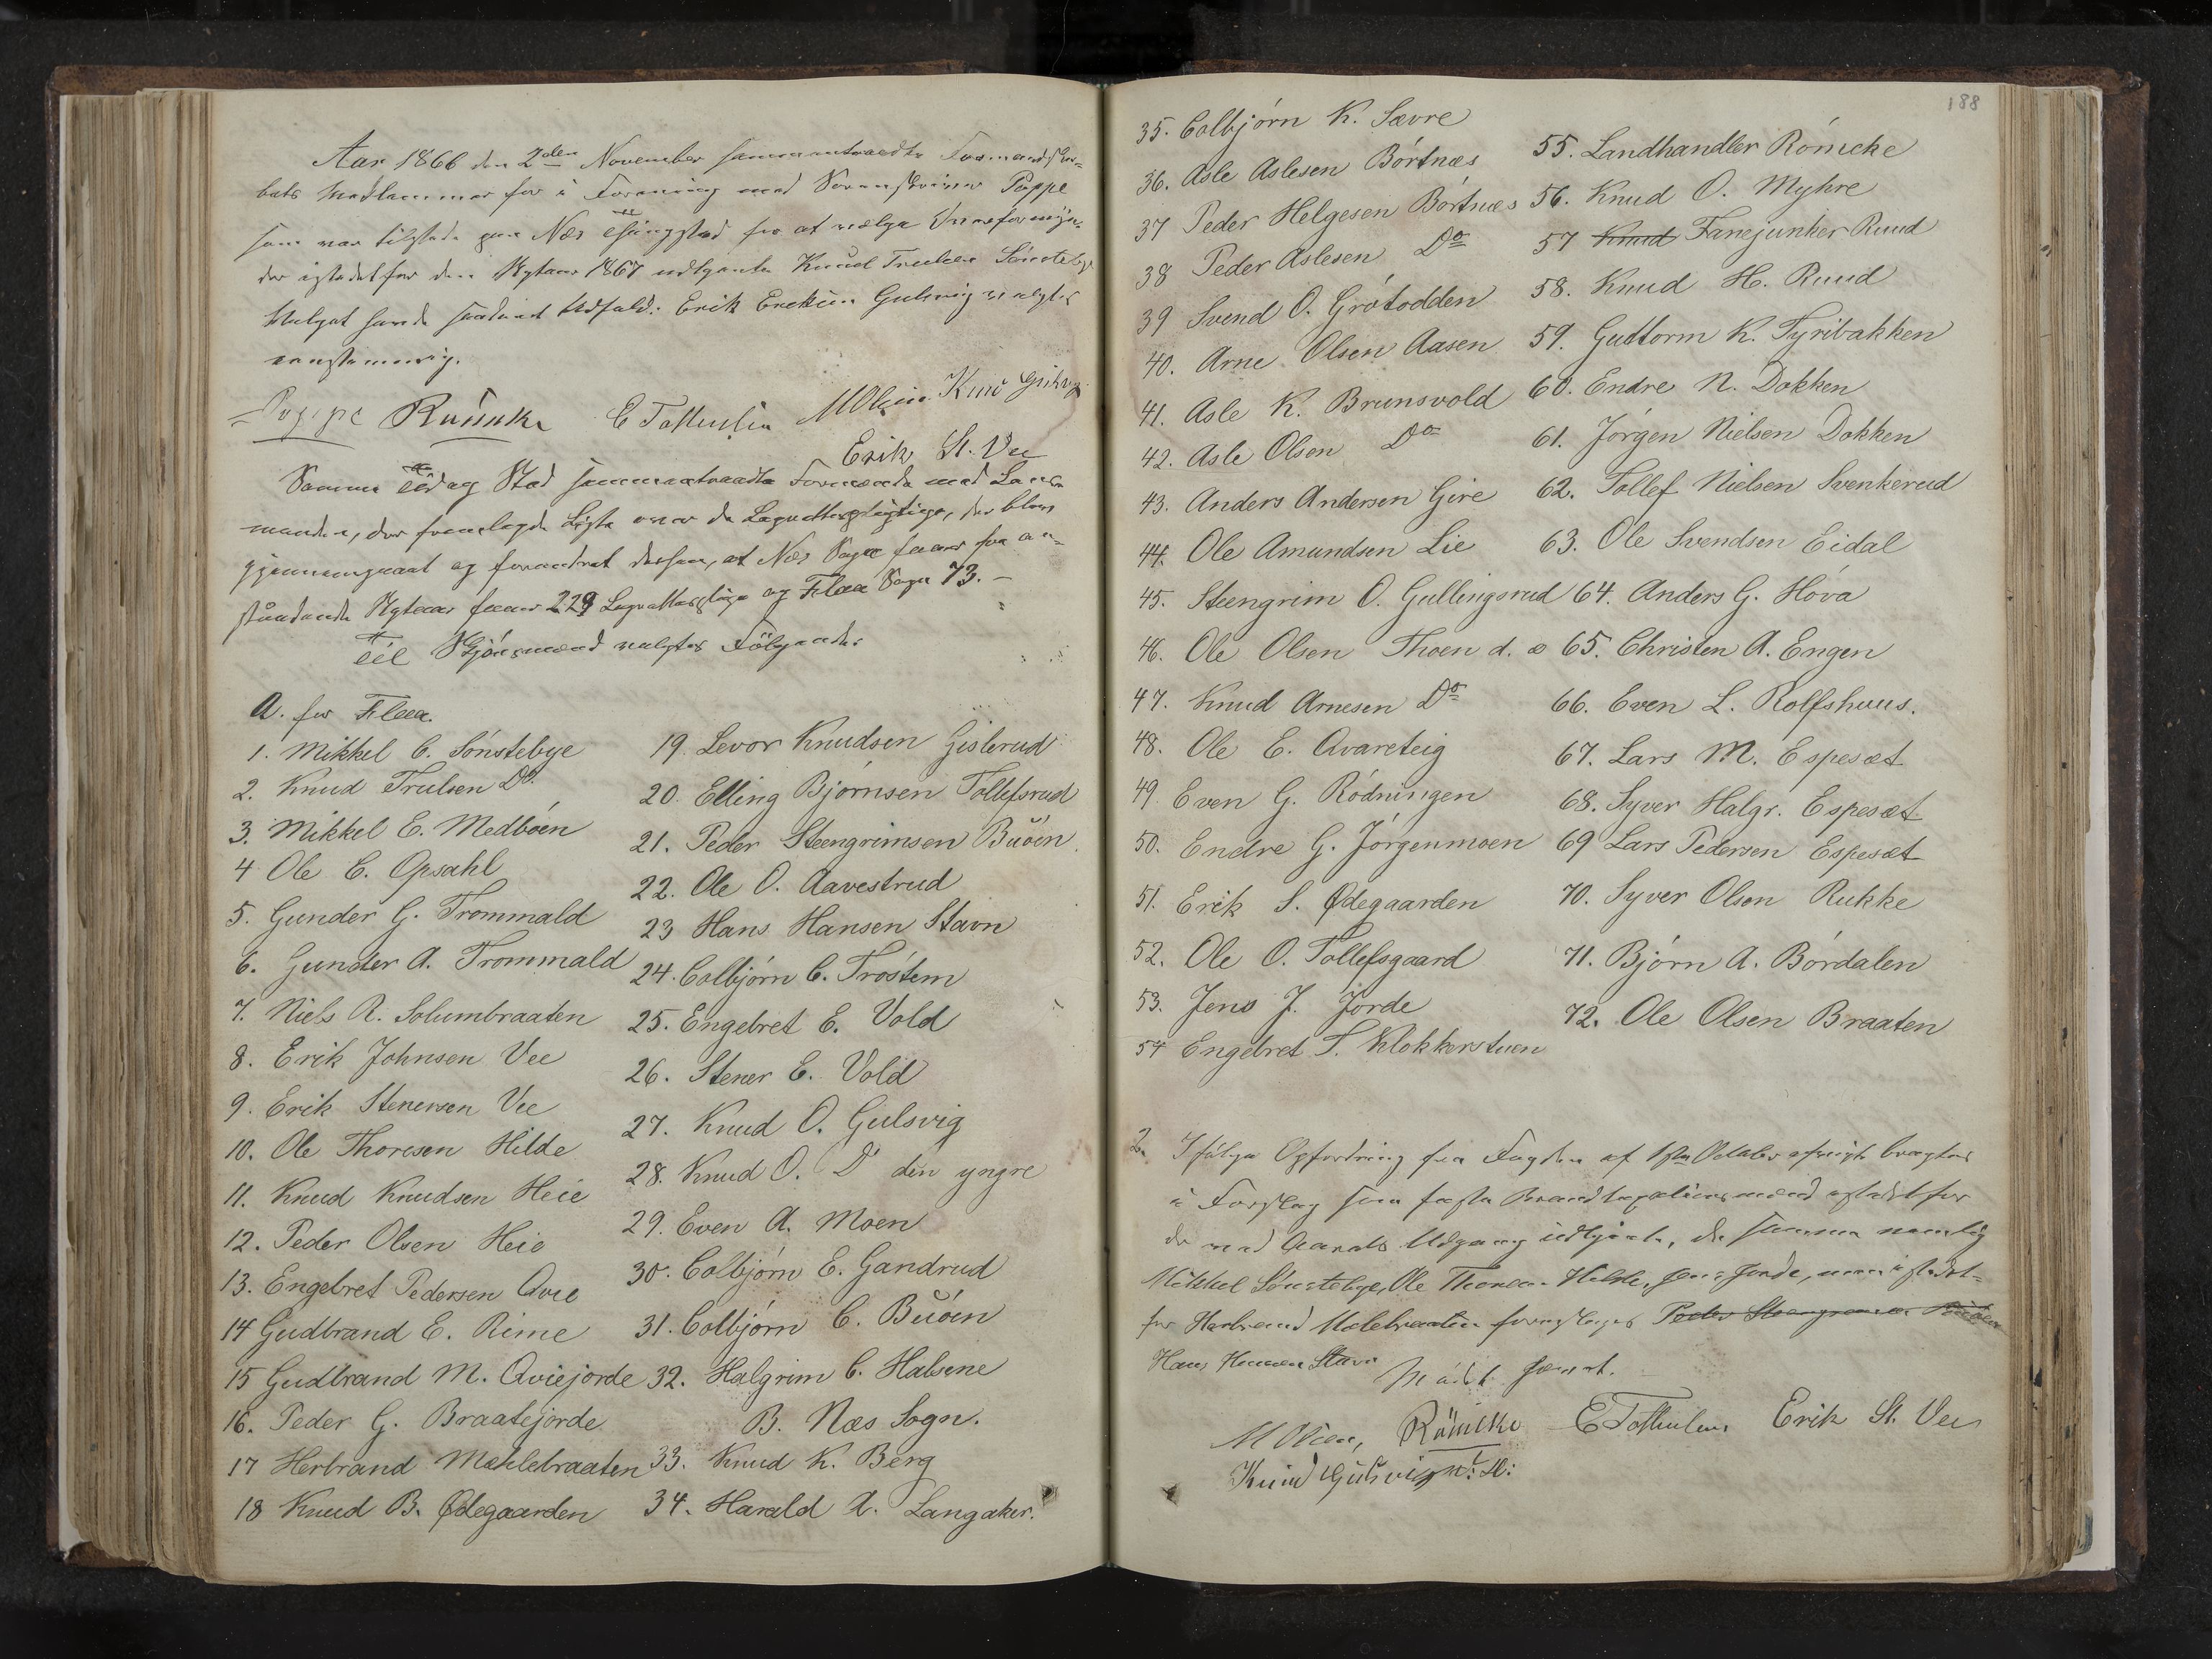 Aar 1866 den 2den November sammentraadte Formandska-
bets Medlemmer for i Forening med Sorenskriver Poppe
som var tilstede paa Næs Thingsted for at vælge Overformyn-
der istedetfor den Nytaar 1867 udtrædende Knud Trulsen Sönstebye
Valget havde saadant Udfald: Erik Eriksen Gulsvig valgtes
eenstemmig.
Poppe Römcke E Tollersen M Olsen Knud Gulsvig
Erik St. Vee
Samme Tid og Sted sammentraadte Formændene med Lens-
manden, der fremlagde Liste over de Lagrettespligtige, der blev
gjennemgaaet og forandret derhen, at Næs Sogn faaer fra an-
staaende Nytaar faaer 229 Lagrettespligtige og Flaa Sogn 73. —
Til Skjönsmænd valgtes Fölgende:
A. for Flaa.
1. Mikkel C. Sönstebye
2. Knud Trulsen Do.
3. Mikkel E. Medböen
4 Ole C. Opsahl
5. Gunder G. Trommald
6. Gunder A. Trommald
7. Niels R. Solumbraaten
8. Erik Johnsen Vee
9. Erik Stenersen Vee
10. Ole Thoresen Hilde
11. Knud Knudsen Heie
12. Peder Olsen Heie
13. Engebret Pedersen Avie
14 Gudbrand E. Rime
15 Gudbrand M. Aviejorde
16. Peder G. Braatejorde
17 Herbrand Mæhlebraaten
18 Knud B. Ødegaarden
19. Levor Knudsen Gislerud
20. Elling Bjørnsen Tollefsrud
21. Peder Steengrimsen Buöen
22. Ole O. Aavestrud
23 Hans Hansen Stavn
24. Colbjörn C. Tröstem
25. Engebret E. Vold
26. Stener E. Vold
27. Knud O. Gulsvig
28. Knud O. Do den yngre
29. Even A. Moen
30. Colbjörn E. Gandrud
31. Colbjörn C. Buöen
32. Halgrim C. Halsene
B. Næs Sogn.
33. Knud K. Berg
34. Harald A. Langaker.
188
35. Colbjörn K. Sævre
36. Asle Aslesen Börtnæs
37 Peder Helgesen Börtnæs
38 Peder Aslesen Do
39 Svend O. Grötodden
40. Arne Olsen Aasen
41. Asle K. Brunsvold
42. Asle Olsen Do
43. Anders Andersen Gire
44. Ole Amundsen Lie
45. Steengrim O. Gullingsrud
46. Ole Olsen Thoen d. æ
47. Knud Arnesen Do
48. Ole E. Qvareteig
49 Even G. Rödningen
50. Endre G. Jörgenmoen
51. Erik S. Ødegaarden
52. Ole O. Tollefsgaard
53. Jens J. Jorde
54 Engebret T. Klokkerstuen
55. Landhandler Römcke
56. Knud O. Myhre
57 Knud Fanejunker Ruud
58. Knud H. Ruud
59. Guttorm K. Tyribakken
60. Endre N. Dokken
61. Jörgen Nielsen Dokken
62. Tollef Nielsen Svenkerud
63. Ole Svendsen Eidal
64. Anders G. Höva
65. Christen A. Engen
66. Even L. Rolfshuus.
67. Lars M. Espesæt
68. Syver Halgr. Espesæt
69 Lars Pedersen Espesæt
70. Syver Olsen Rukke
71. Björn A. Bördalen
72. Ole Olsen Braaten
2. Ifölge Opfordring fra Fogden af 1ste Oktober bragtes
i Forslag som faste Brandtaxationsmænd istedetfor
de ved Aarets Udgang udtrædende, de samme nemlig
Mikkel Sönstebye, Ole Thoresen Hilde, Jens Jorde, men istedet-
for Herbrand Mælebraaten foreslages Peder Steengrimsen Buöen
Hans Hansen Stavn
Mödet hævet.
M Olsen, Römcke E Tollersen Erik St. Vee
Knud Gulsvig